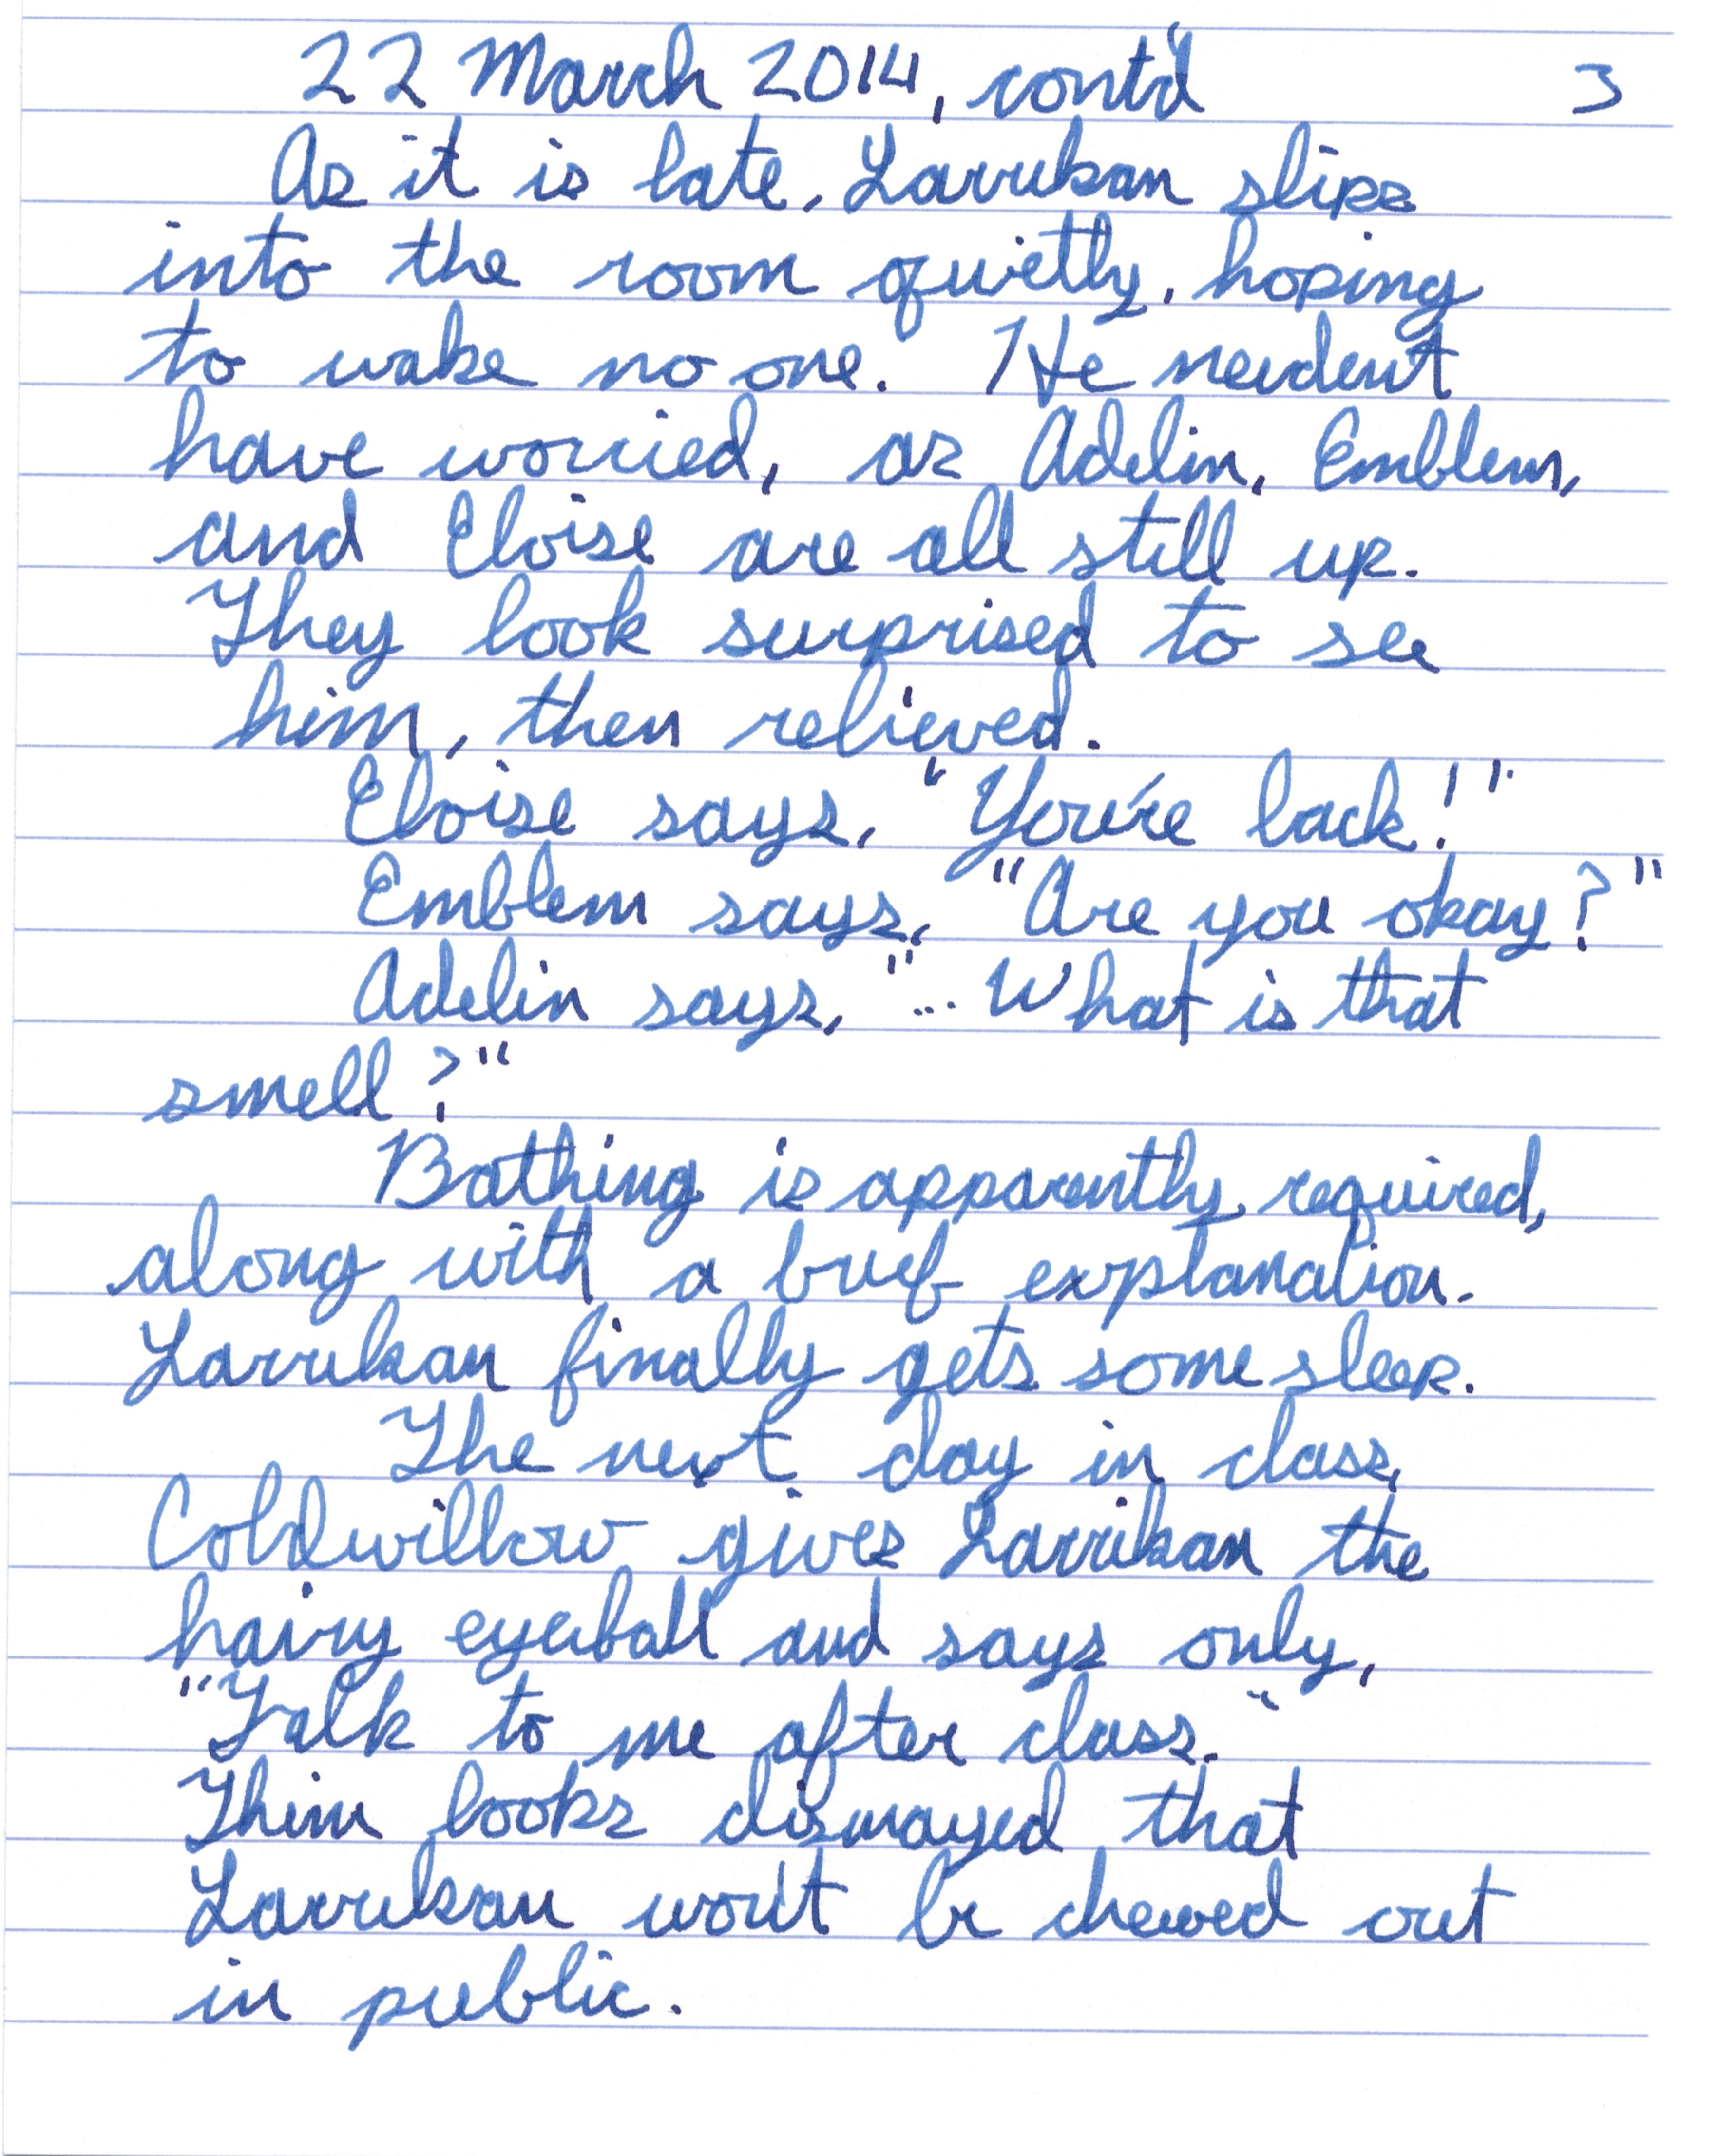 22 March 2014, cont'd 3
As it is late, Larrikan slips
into the room quietly, hoping
to wake no one. He needn't
have worried, as Adelin, Emblem,
and Eloise are all still up.
They look surprised to see
him, then relieved.
Eloise says, "You're back!"
Emblem says, "Are you okay?"
Adelin says, "... What is that
smell?"
Bathing is apparently required,
along with a brief explanation.
Larrikan finally gets some sleep.
The next day in class,
Coldwillow gives Larrikan the
hairy eyeball and says only,
"Talk to me after class."
Thim looks dismayed that
Larrikan won't be chewed out
in public.